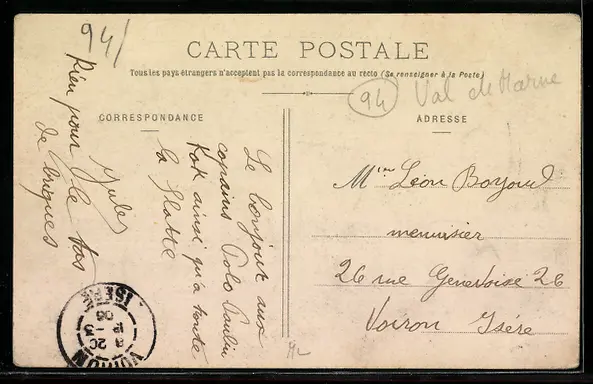 94/
CARTE POSTALE
Tous les pays étrangers n'acceptent pas la correspondance au recto (Se renseigner à la Poste)
94 Val de Marne
CORRESPONDANCE
ADRESSE
Le bonjour aux
copains Polo Paulin
Kok ainsi qu'a toute
la
Jules
Rien pour le tas
de briques
Mme Léon Boyoud
menuisier
26 rue Genevoise 26
Voiron Isère
VOIRON
ISERE